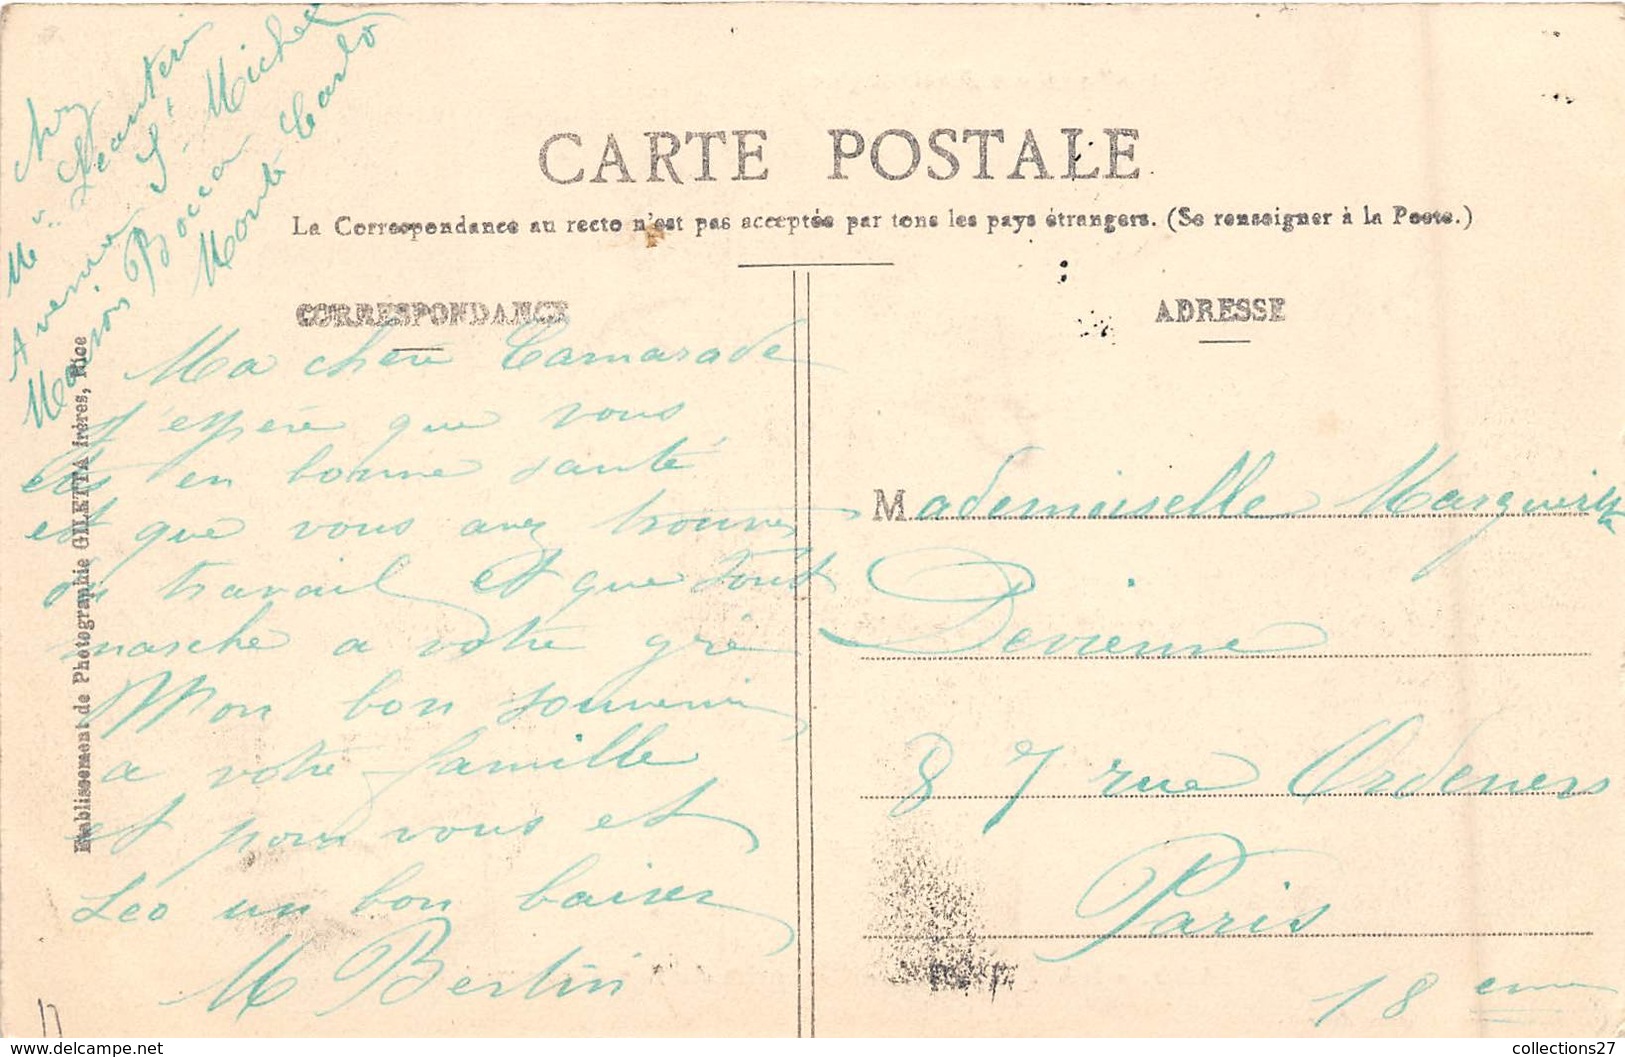 Chez
Mr Leautieri
Avenue St Michel
Maison Bocca
Monte Carlo
CARTE POSTALE
La Correspondance au recto n'est pas acceptée par tous les pays étrangers. (Se renseigner à la Poste.)
CORRESPONDANCE
ADRESSE
Ma chere Camarade
J'espère que vous
etes en bonne santé
et que vous avez trouver
du travail et que tout
marche a votre gré
Mon bon souvenir
a votre famille
et pour vous et
Leo un bon baiser
M Bertin
Mademoiselle Marguerite
Devienne
87 rue Ordeners
Paris
18 eme
Etablissement de Photographie GILETTA frères, Nice
collections27